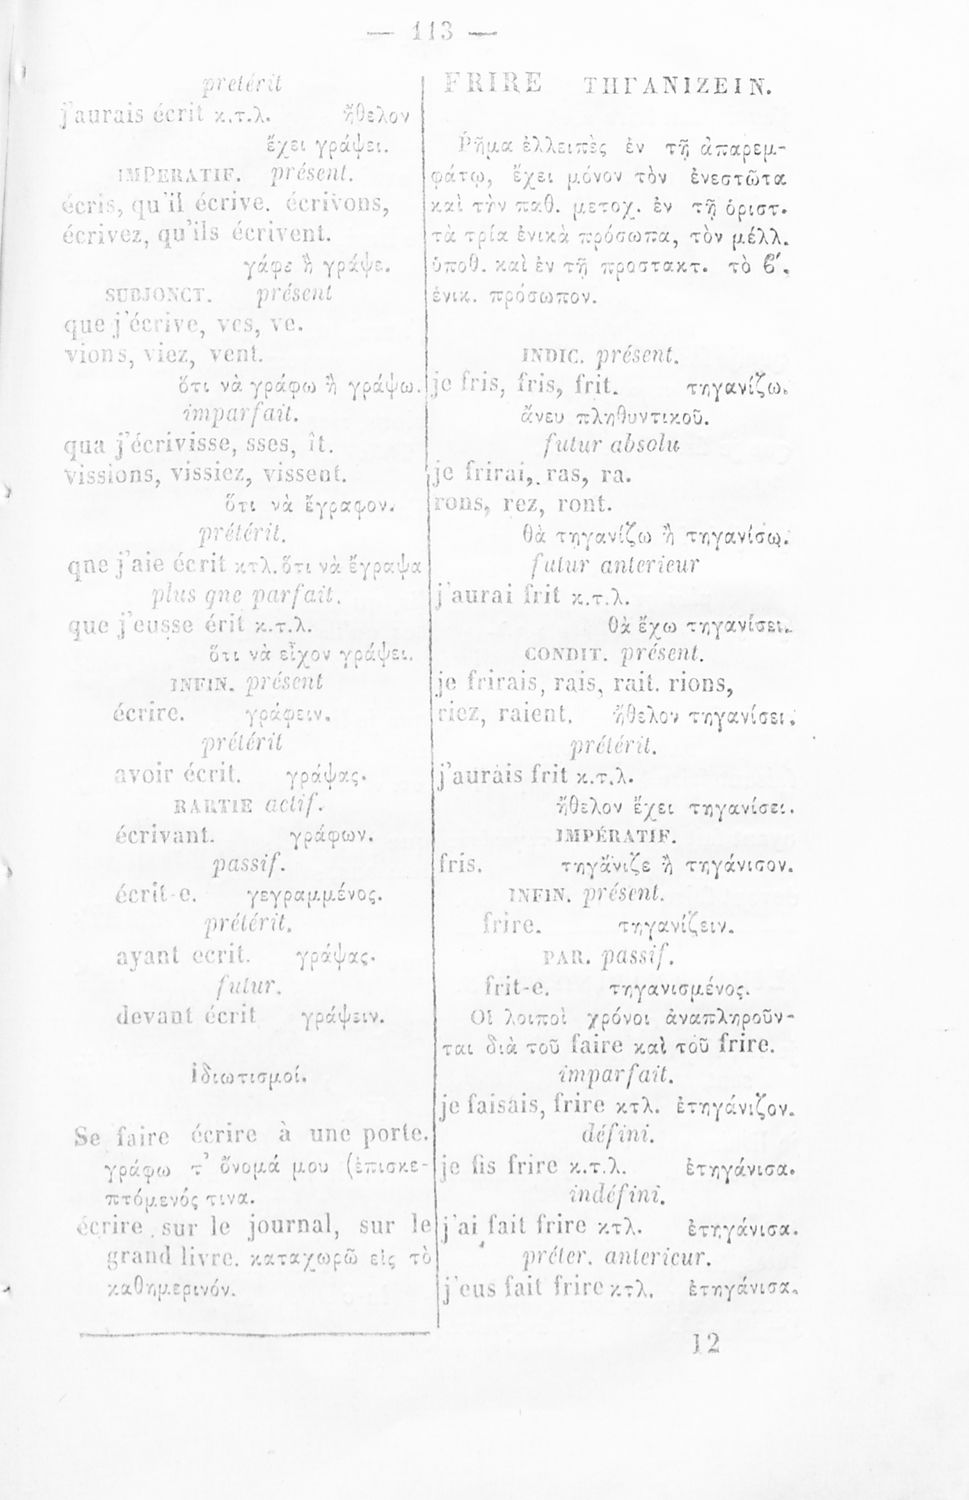 — 113 —
prétérit
j'aurais écrit κ.τ.λ. ἤθελον
ἔχει γράψει.
IMPERATIF. présent.
écris, qu'il écrive. écrivons,
écrivez, qu'ils écrivent.
γάφε ἢ γράψε.
SUBJONCT. présent
que j'écrive, ves, ve.
vions, viez, vent.
ὅτι νὰ γράφω ἢ γράψω.
imparfait.
qua j'écrivisse, sses, ît.
vissions, vissiez, vissent.
ὅτι νὰ ἔγραφον.
prétérit.
que j'aie écrit κτλ. ὅτι νὰ ἔγραψα
plus gne parfait.
que j'eusse érit κ.τ.λ.
ὅτι νὰ εἶχον γράψει.
INFIN. présent
écrire. γράφειν.
prétérit
avoir écrit. γράψας.
PARTIE actif.
écrivant. γράφων.
passif.
écrit-e. γεγραμμένος.
prétérit.
ayant ecrit. γράψας.
futur.
devant écrit γράψειν.
ἰδιωτισμοί.
Se faire écrire à une porte.
γράφω τ' ὄνομά μου (ἐπισκε-
πτόμενός τινα.
écrire sur le journal, sur le
grand livre. καταχωρῶ εἰς τὸ
καθημερινόν.
FRIRE ΤΗΓΑΝΙΖΕΙΝ.
Ῥῆμα ἐλλειπὲς ἐν τῇ ἀπαρεμ-
φάτῳ, ἔχει μόνον τὸν ἐνεστῶτα
καὶ τὴν παθ. μετοχ. ἐν τῇ ὁριστ.
τὰ τρία ἑνικὰ πρόσωπα, τὸν μέλλ.
ὑποθ. καὶ ἐν τῇ προστακτ. τὸ ϐ'.
ἑνικ. πρόσωπον.
INDIC. présent.
je fris, fris, frit. τηγανίζω.
ἄνευ πληθυντικοῦ.
futur absolu
je frirai, ras, ra.
rons, rez, ront.
θὰ τηγανίζω ἢ τηγανίσω.
futur anterieur
j'aurai frit κ.τ.λ.
θὰ ἔχω τηγανίσει.
CONDIT. présent.
je frirais, rais, rait. rions,
riez, raient. ἤθελον τηγανίσει.
prétérit.
j'aurais frit κ.τ.λ.
ἤθελον ἔχει τηγανίσει.
IMPÉRATIF.
fris. τηγάνιζε ἢ τηγάνισον.
INFIN. présent.
frire. τηγανίζειν.
PAR. passif.
frit-e. τηγανισμένος.
Οἱ λοιποὶ χρόνοι ἀναπληροῦν-
ται διὰ τοῦ faire καὶ τοῦ frire.
imparfait.
je faisais, frire κτλ. ἐτηγάνιζον.
défini.
je fis frire κ.τ.λ. ἐτηγάνισα.
indéfini.
j'ai fait frire κτλ. ἐτηγάνισα.
préter. anterieur.
j'eus fait frire κτλ. ἐτηγάνισα.
12